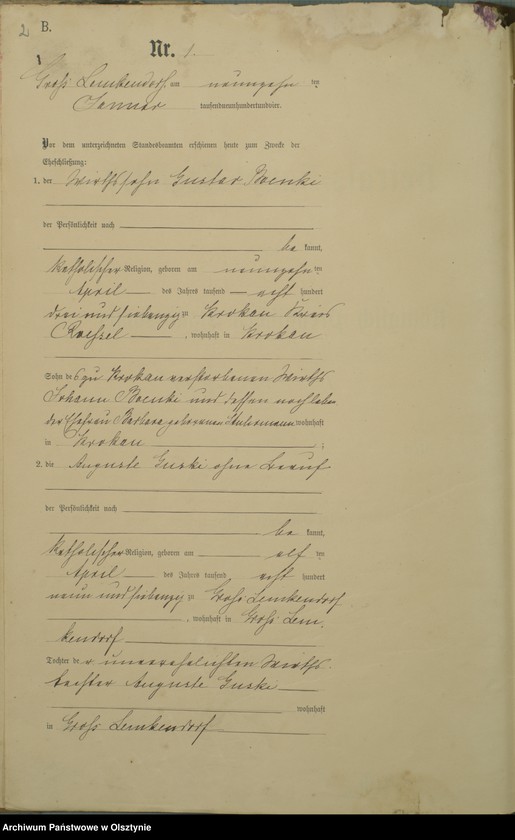 2 B.
Nr. 1.
Groß Lemkendorf, am neunzehn ten
Januar tausendneunhundertundvier.
Vor dem unterzeichneten Standesbeamten erschienen heute zum Zwecke der
Eheschließung:
1. der Wirthssohn Gustav
der Persönlichkeit nach
be kannt,
katholischer Religion, geboren am neunzehn ten
April des Jahres tausend acht hundert
drei und siebenzig zu Krokau Kreis
Roessel, wohnhaft in Krokau
Sohn des zu Krokau verstorbenen Wirths
Johann und dessen nachleben
der Ehefrau Barbara geborenen wohnhaft
in Krokau;
2. die Auguste Guski ohne Beruf
der Persönlichkeit nach
be kannt,
katholischer Religion, geboren am elf ten
April des Jahres tausend acht hundert
neun und siebenzig zu Groß Lemkendorf
, wohnhaft in Groß Lem-
kendorf
Tochter der unverehelichten Wirths-
tochter Auguste Guski
wohnhaft
in Groß Lemkendorf
Archiwum Państwowe w Olsztynie